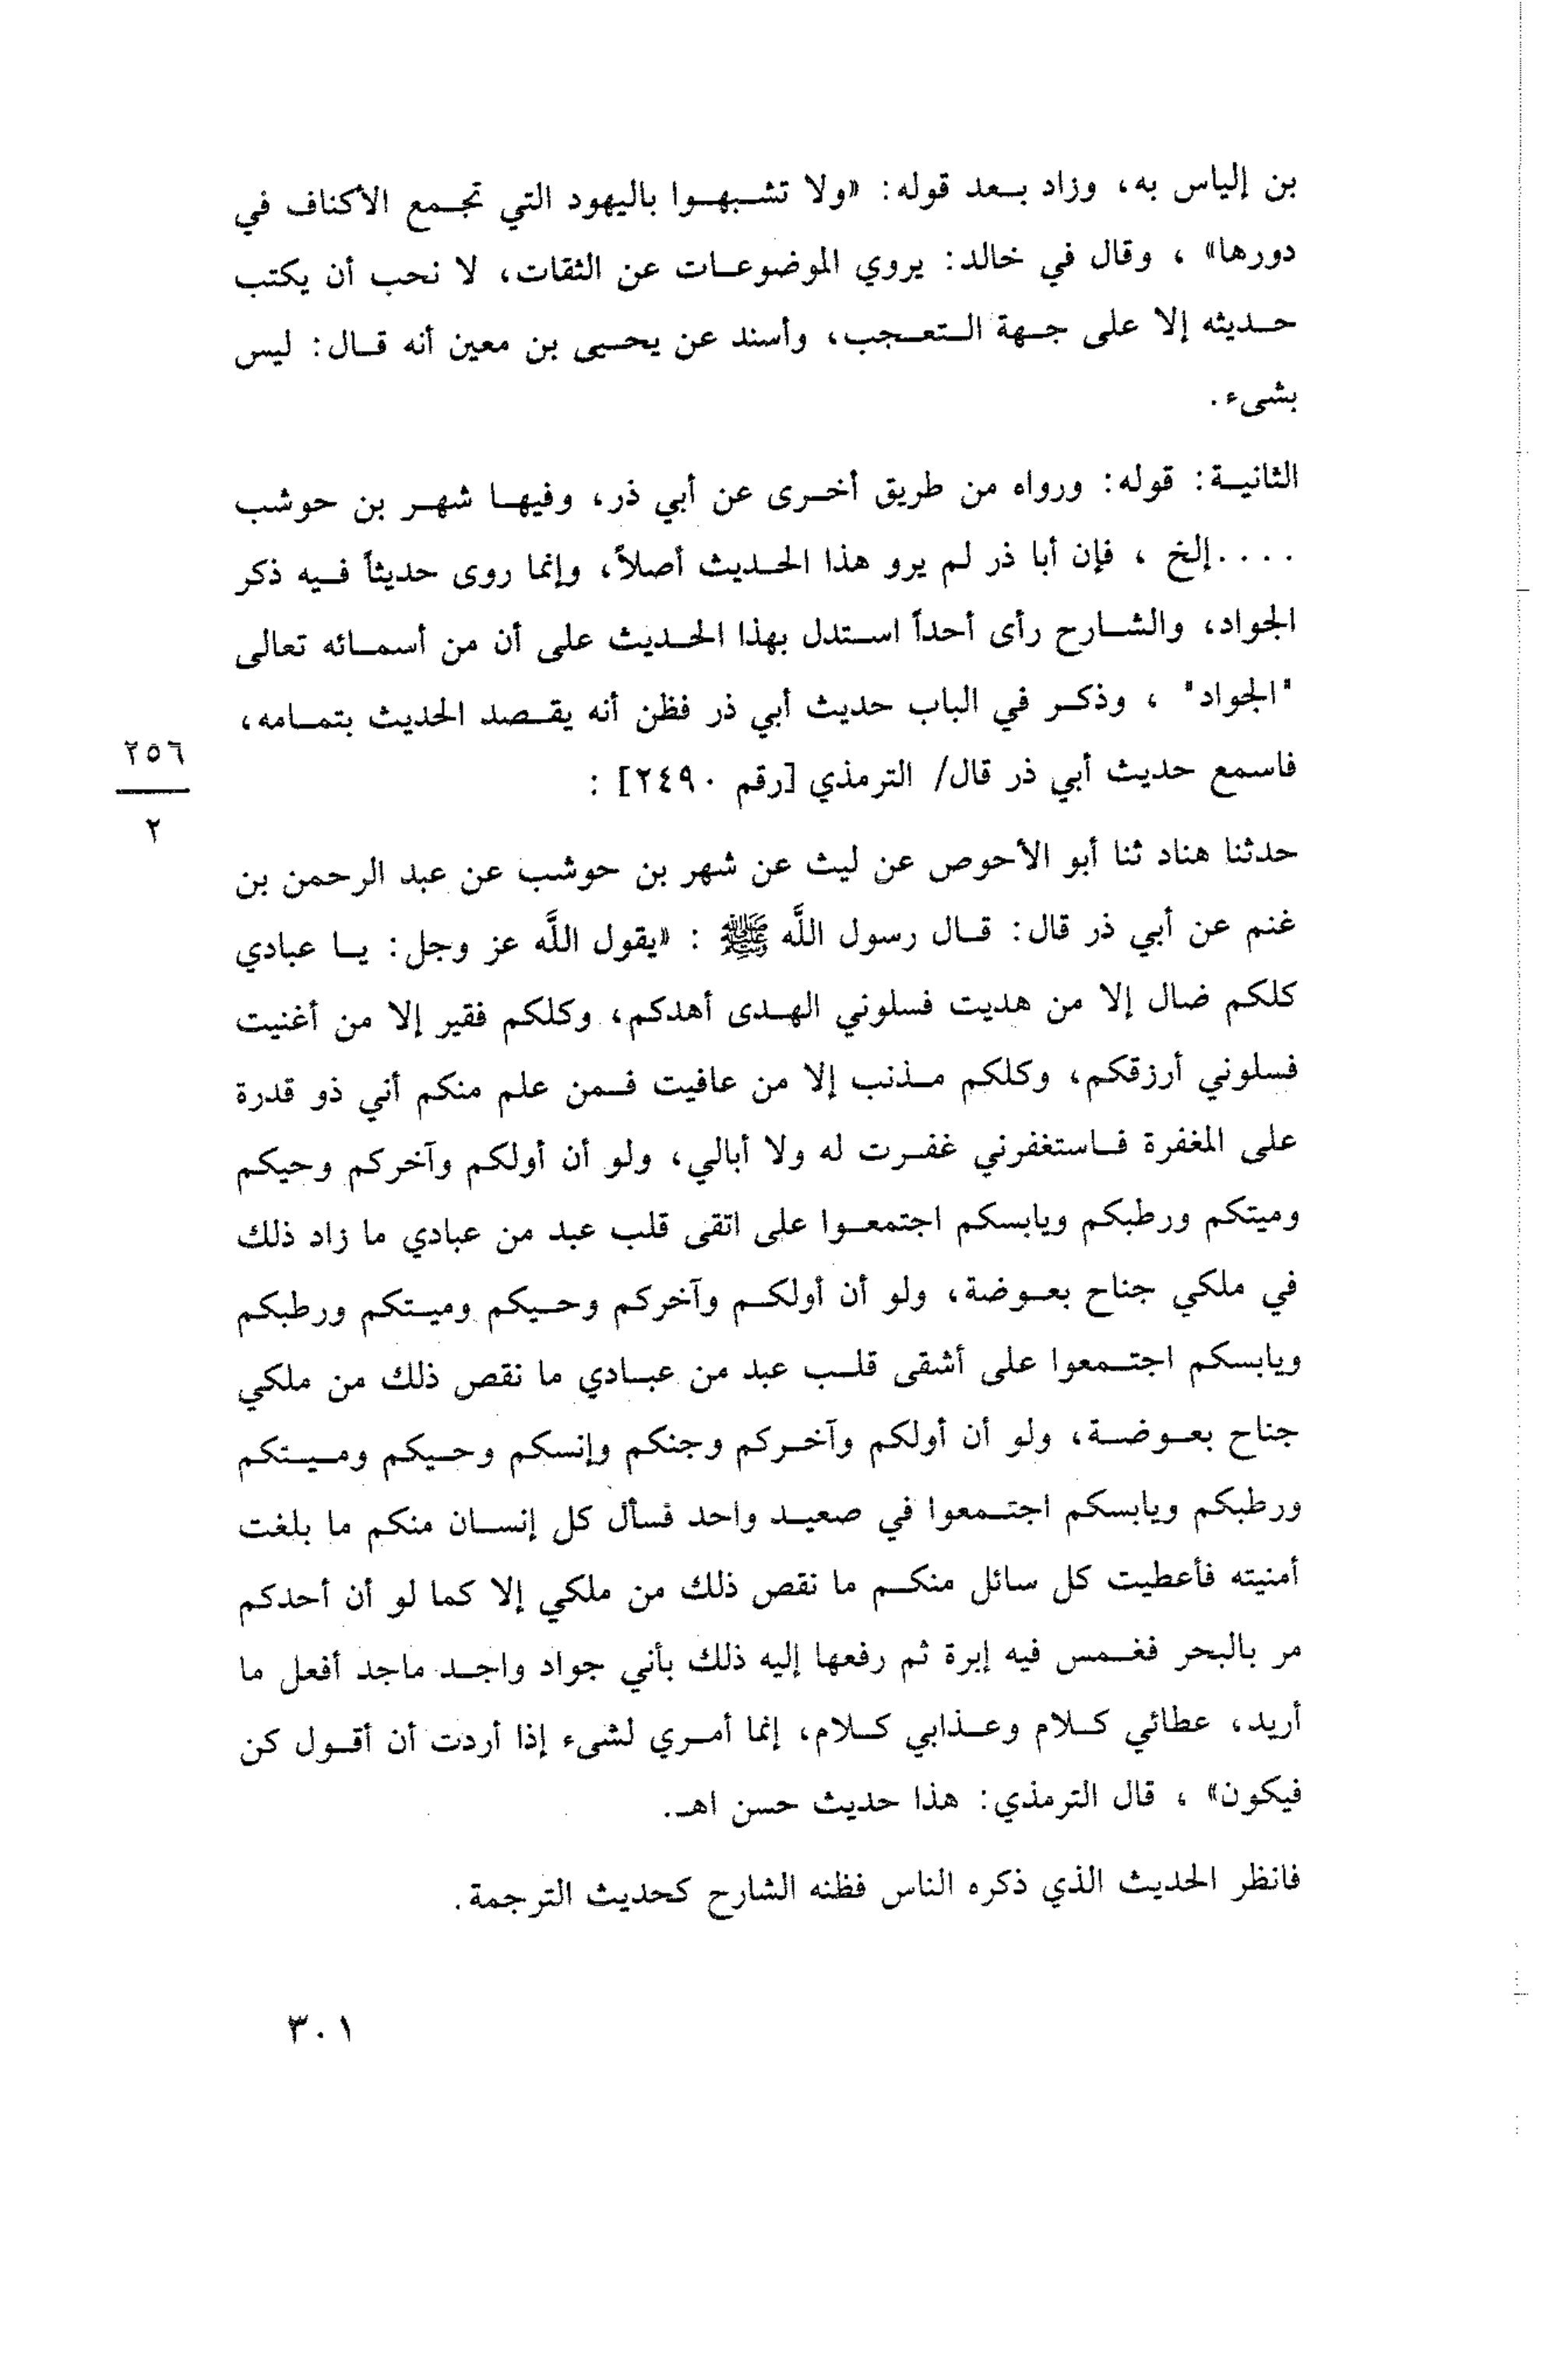 بن إلياس به، وزاد بعد قوله: «ولا تشبهوا باليهود التي تجمع الأكناف في
دورها» ، وقال في خالد: يروي الموضوعات عن الثقات، لا نحب أن يكتب
حديثه إلا على جهة التعجب، وأسند عن يحيى بن معين أنه قال: ليس
بشىء.
الثانية: قوله: ورواه من طريق أخرى عن أبي ذر، وفيها شهر بن حوشب
....إلخ ، فإن أبا ذر لم يرو هذا الحديث أصلاً، وإنما روى حديثاً فيه ذكر
الجواد، والشارح رأى أحداً استدل بهذا الحديث على أن من أسمائه تعالى
"الجواد" ، وذكر في الباب حديث أبي ذر فظن أنه يقصد الحديث بتمامه،
فاسمع حديث أبي ذر قال/ الترمذي [رقم ٢٤٩٠] :
٢٥٦
٢
حدثنا هناد ثنا أبو الأحوص عن ليث عن شهر بن حوشب عن عبد الرحمن بن
غنم عن أبي ذر قال: قال رسول اللَّه ﷺ : «يقول اللَّه عز وجل: يا عبادي
كلكم ضال إلا من هديت فسلوني الهدى أهدكم، وكلكم فقير إلا من أغنيت
فسلوني أرزقكم، وكلكم مذنب إلا من عافيت فمن علم منكم أني ذو قدرة
على المغفرة فاستغفرني غفرت له ولا أبالي، ولو أن أولكم وآخركم وحيكم
وميتكم ورطبكم ويابسكم اجتمعوا على اتقى قلب عبد من عبادي ما زاد ذلك
في ملكي جناح بعوضة، ولو أن أولكم وآخركم وحيكم وميتكم ورطبكم
ويابسكم اجتمعوا على أشقى قلب عبد من عبادي ما نقص ذلك من ملكي
جناح بعوضة، ولو أن أولكم وآخركم وجنكم وإنسكم وحيكم وميتكم
ورطبكم ويابسكم اجتمعوا في صعيد واحد فسأل كل إنسان منكم ما بلغت
أمنيته فأعطيت كل سائل منكم ما نقص ذلك من ملكي إلا كما لو أن أحدكم
مر بالبحر فغمس فيه إبرة ثم رفعها إليه ذلك بأني جواد واجد ماجد أفعل ما
أريد، عطائي كلام وعذابي كلام، إنما أمري لشىء إذا أردت أن أقول كن
فيكون» ، قال الترمذي: هذا حديث حسن اهـ.
فانظر الحديث الذي ذكره الناس فظنه الشارح كحديث الترجمة.
٣٠١